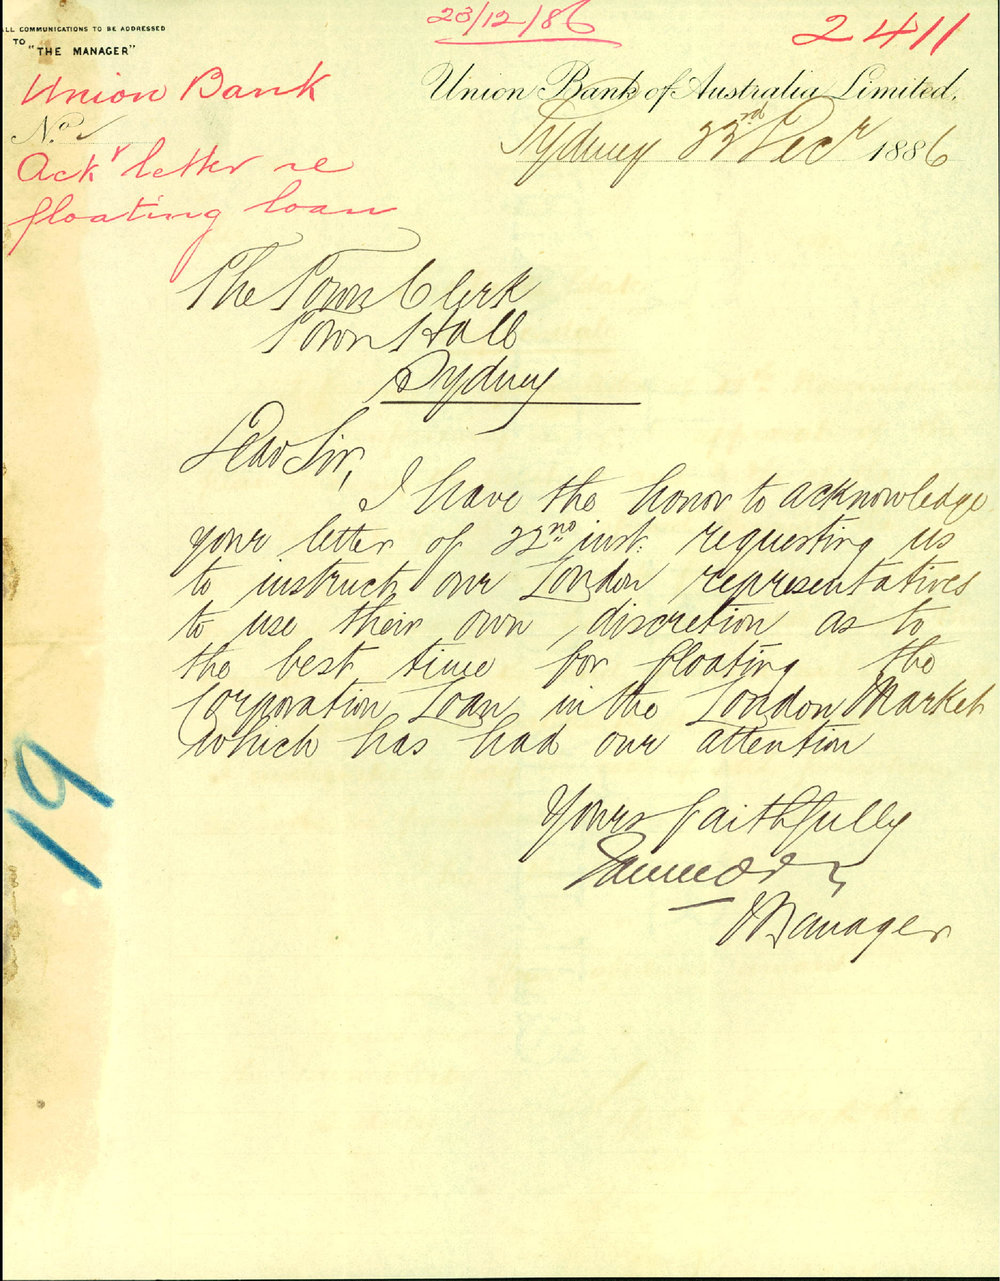 23/12/86
2411
ALL COMMUNICATIONS TO BE ADDRESSED
TO "THE MANAGER"
Union Bank
Union Bank of Australia Limited,
No.
Sydney 23rd Decr 1886
Ackr letter re
floating loan
The Town Clerk
Town Hall
Sydney
Dear Sir,
I have the honor to acknowledge
your letter of 22nd inst: requesting us
to instruct our London representatives
to use their own discretion as to
the best time for floating the
Corporation Loan in the London Market
which has had our attention
Yours faithfully
Manager
19